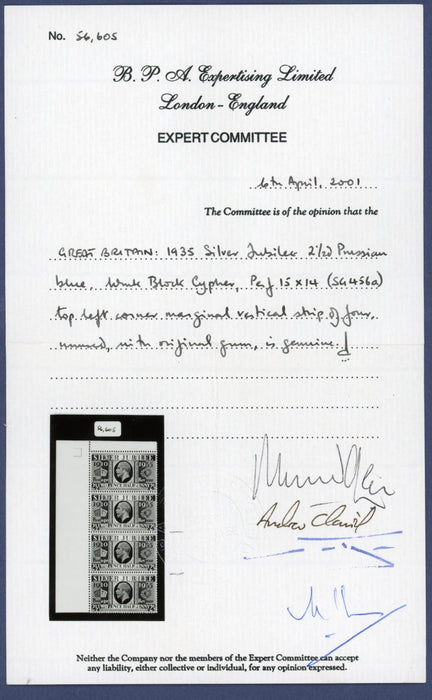 No. 56,605
B. P. A. Expertising Limited
London - England
EXPERT COMMITTEE
6th April, 2001
The Committee is of the opinion that the
GREAT BRITAIN: 1935 Silver Jubilee 2½d Prussian
blue, Wmk Block Cypher, Perf 15 x 14 (SG456a)
top left corner marginal vertical strip of four,
unused, with original gum, is genuine.
56,605
SILVER JUBILEE
1910 1935
HALFPENNY
SILVER JUBILEE
1910 1935
SILVER JUBILEE
1910 1935
SILVER JUBILEE
1910 1935
Neither the Company nor the members of the Expert Committee can accept
any liability, either collective or individual, for any opinion expressed.